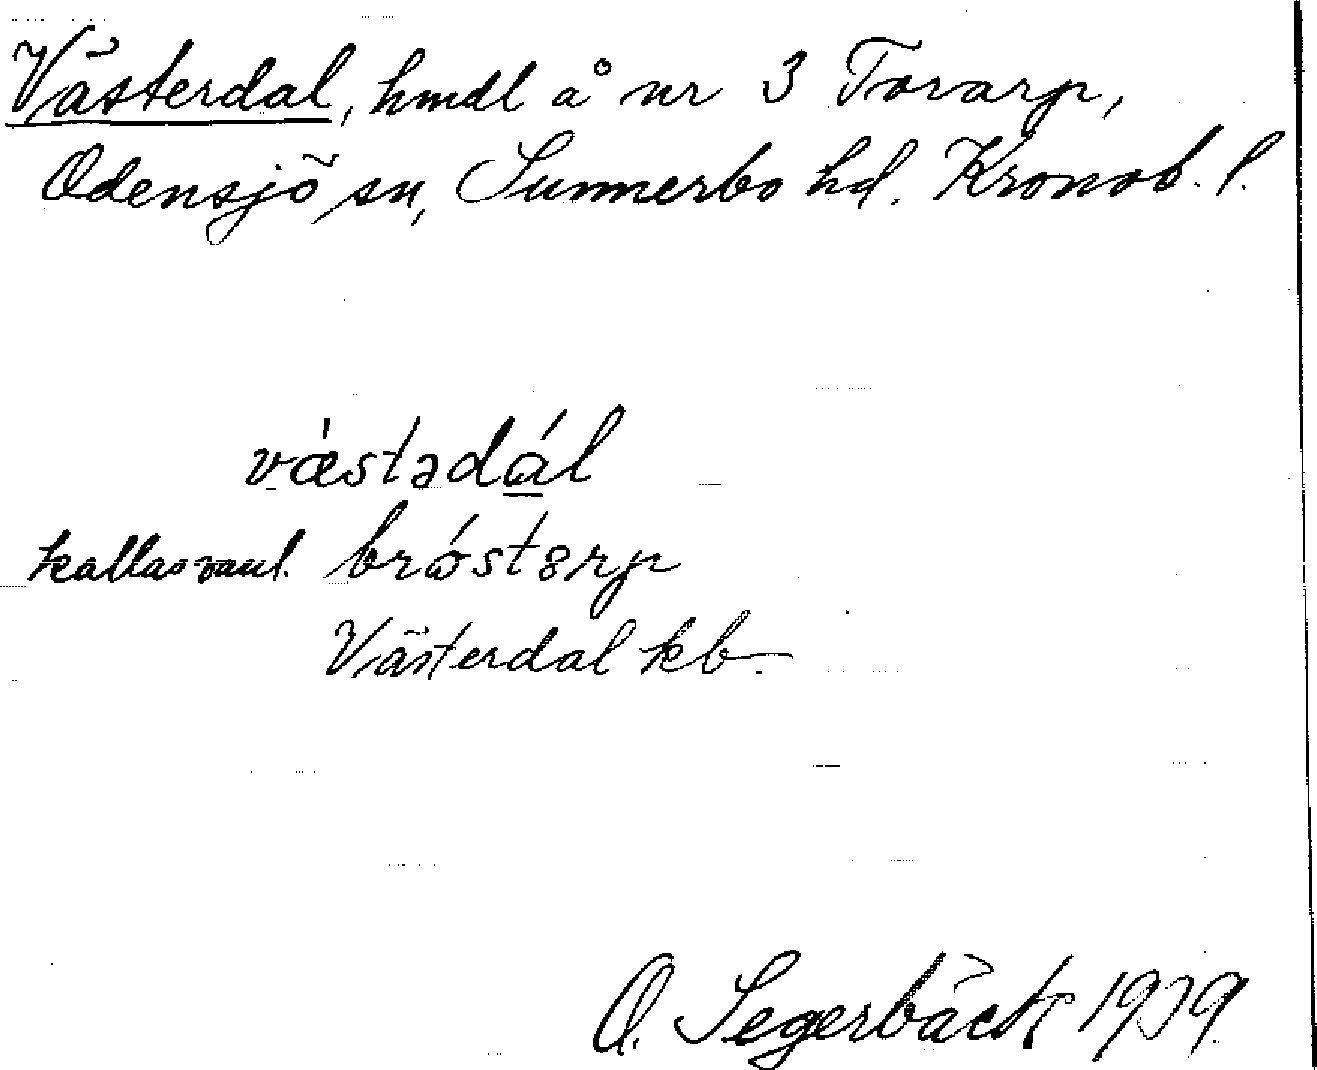 Västerdal, hmdl å nr 3 Torarp,
Odensjö sn, Sunnerbo hd. Kronob. l.
væ̀stədál
kallas vanl. bróstərp
Västerdal kb.
O. Segerbäck 1939